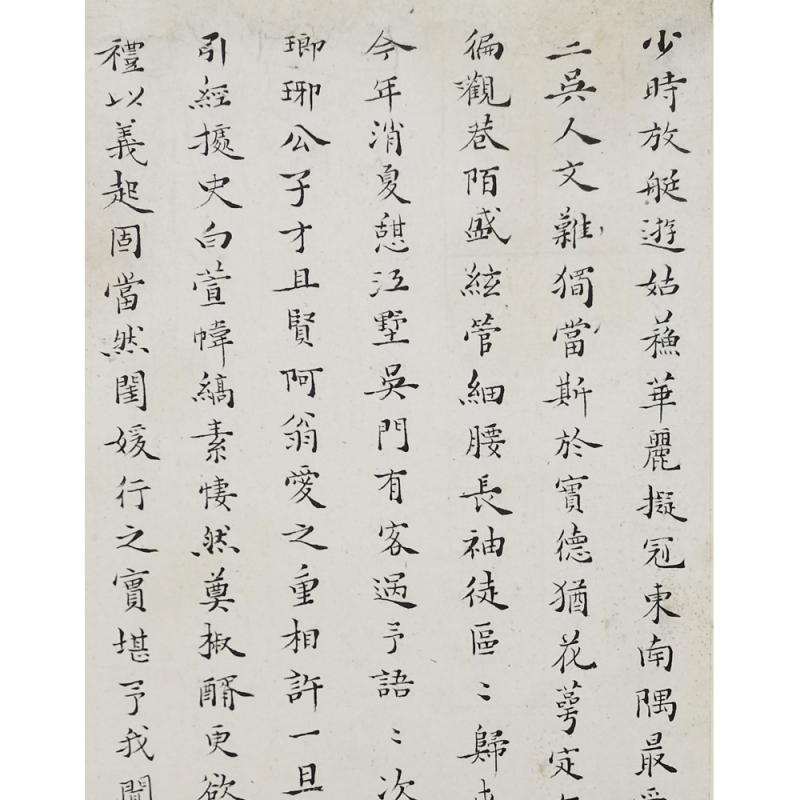 少時放艇遊姑蘓華麗擬冠東南隅最
二吳人文難獨當斯於實德猶花萼定
徧觀巷陌盛絃管細腰長袖徒區〻歸
今年消夏憇江墅吳門有客過予語〻次
瑯琊公子才且賢阿翁愛之重相許一旦
引經據史白萱幃縞素悽然奠椒醑更欲
禮以義起固當然閨媛行之實堪予我聞